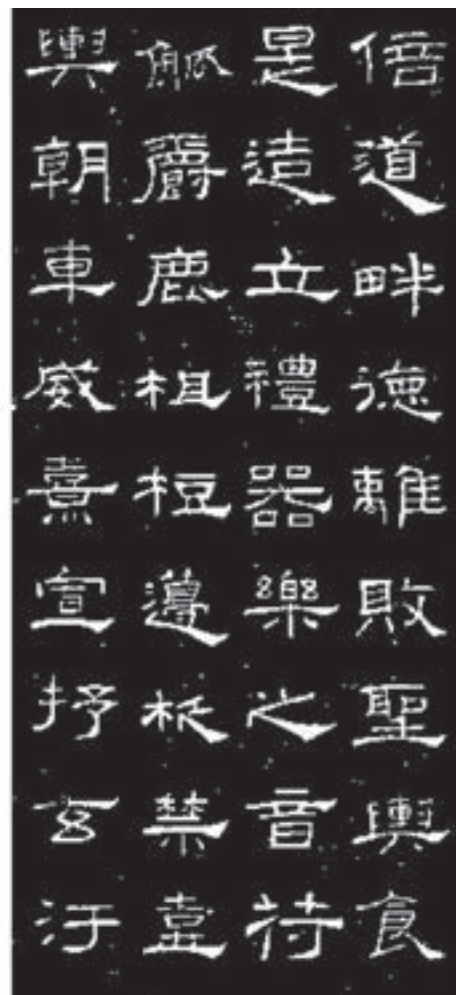 倍道畔德離敗聖輿食
是造立禮器樂之音符
觚爵鹿柤梪籩柉禁壺
輿朝車威熹宣抒玄汙